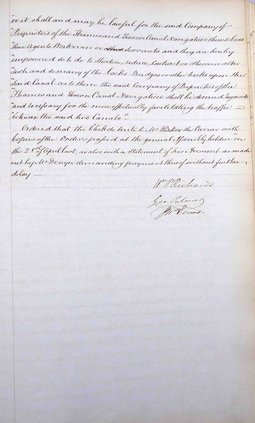 or it shall and may be lawful for the said Company of
Proprietors of the Thames and Severn Canal Navigation their
their Agents Workmen or Servants and they are hereby
empowered to do to shorten, reduce, contract, or
such and so many of the Locks Bridges or other works upon the
said Canal as to them the said Company of Proprietors of the
Thames and Severn Canal Navigation shall be deemed requisite
and necessary for the more effectually facilitating the traffic
between the said two Canals"
Ordered that the Clerk do write to Mr with
copies of the Orders passed at the general Assembly holden on
the 2 of April last, as also with a Statement of his Account as made
out by Mr Denyer demanding payment thereof without further
delay
Wm Richards
Geo
Jn Evans